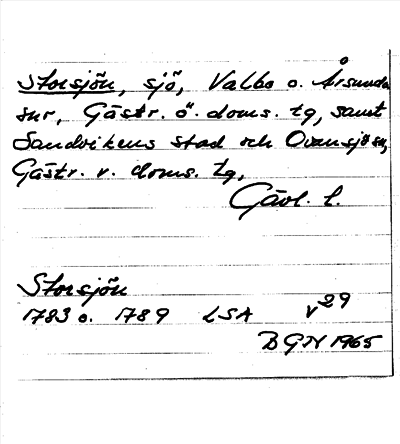 Storsjön, sjö, Valbo o. Årsunda
snr, Gästr. ö. doms. tg, samt
Sandvikens stad och Ovansjö sn,
Gästr. v. doms. tg,
Gävl. l.
Storsjön
1783 o. 1789 LSA v29
BGN 1965